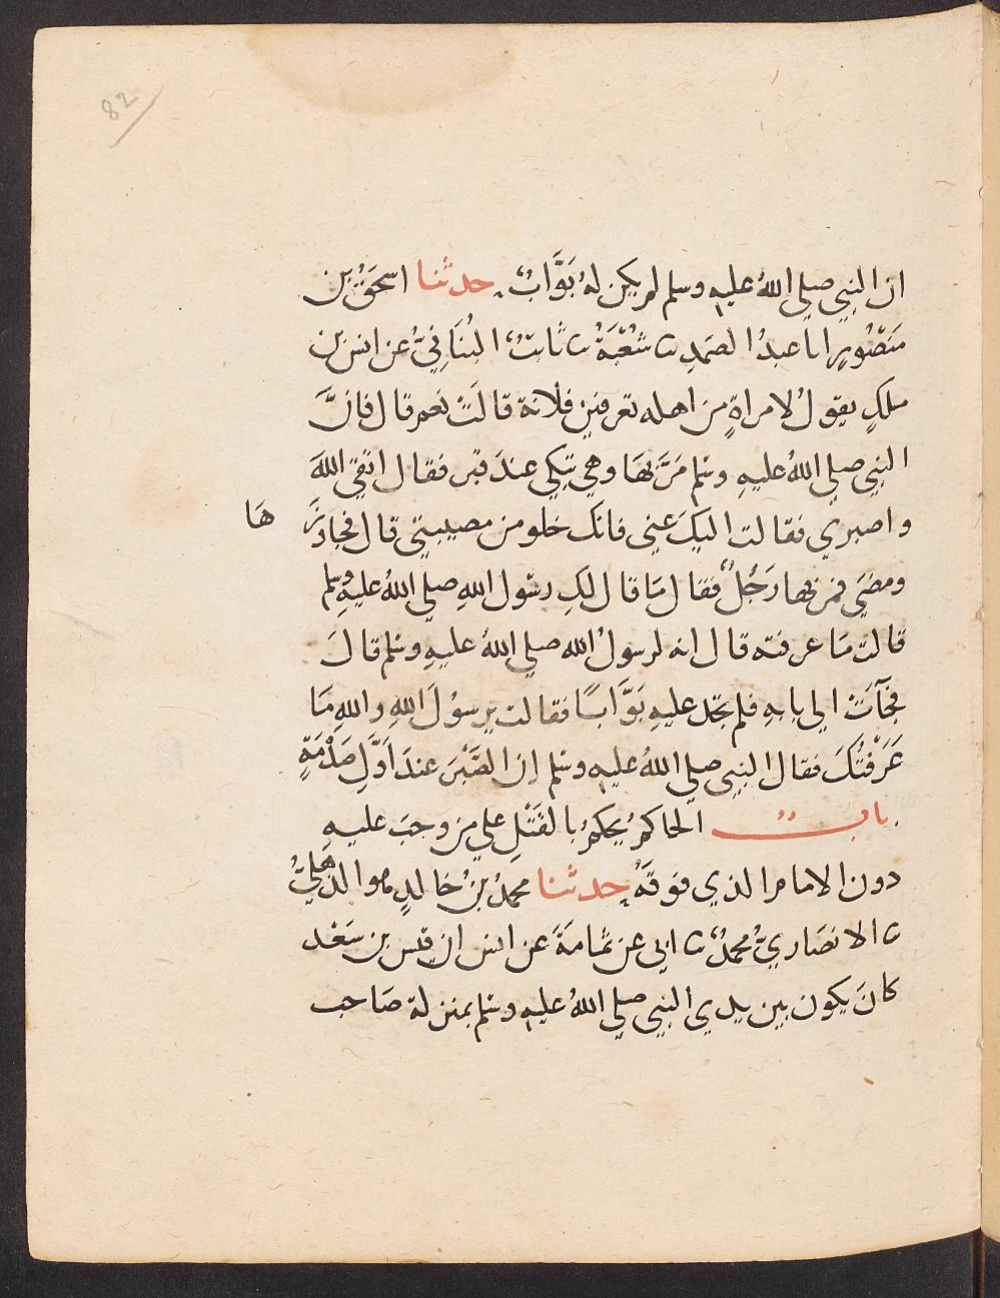 82
ان النبي صلي اللهُ عليهِ وسلم لم يكن لهُ بَوَّابٌ حدثنا اسحَقُ بن
مَنصُورٍ انا عبدُ الصَمدِ ثنا شُعْبَةُ ثنا ثابتٌ البُنَانِيُّ عن انس بن
ملكٍ يقولُ لامراةٍ مِن اهله تعرفين فلانة قالتْ نعم قال فانَّ
النبي صلي اللهُ عليهِ وسلم مَرَّ بهَا وهي تبكي عندَ قبر فقال اتقي اللهَ
واصبري فقالت اليكَ عنِي فانك خلو من مصيبتي قال فجاوزَ هَا
ومضَي فمر بها رَجُلٌ فقال مَا قال لكِ رسُول اللهِ صلي اللهُ عليهِ وسلم
قالت مَا عرفته قال انه لرسولُ الله صلي اللهُ عليهِ وسلم قالَ
فجآتْ الي بابهِ فلم تجد عليهِ بَوَّابًا فقالت يرسُولَ اللهِ واللهِ مَا
عَرَفْتُكَ فقال النبي صلي اللهُ عليهِ وسلم إن الصَّبْرَ عندَ اَوَّلِ صَدْمَةٍ
بابُ الحاكمُ يحكمُ بالقَتْلِ علي من وجبَ عليهِ
دون الامام الذي فوقهُ حدثنا محمدُ بنُ خالدٍ هوا الذُّهليُّ
ثنا الانصَاريُّ محمدٌ ثنا ابي عن ثمامَةَ عن انس ان قيس بن سَعْد
كانَ يكون بين يدي النبي صلي اللهُ عليهِ وسلم بمنزلة صَاحب